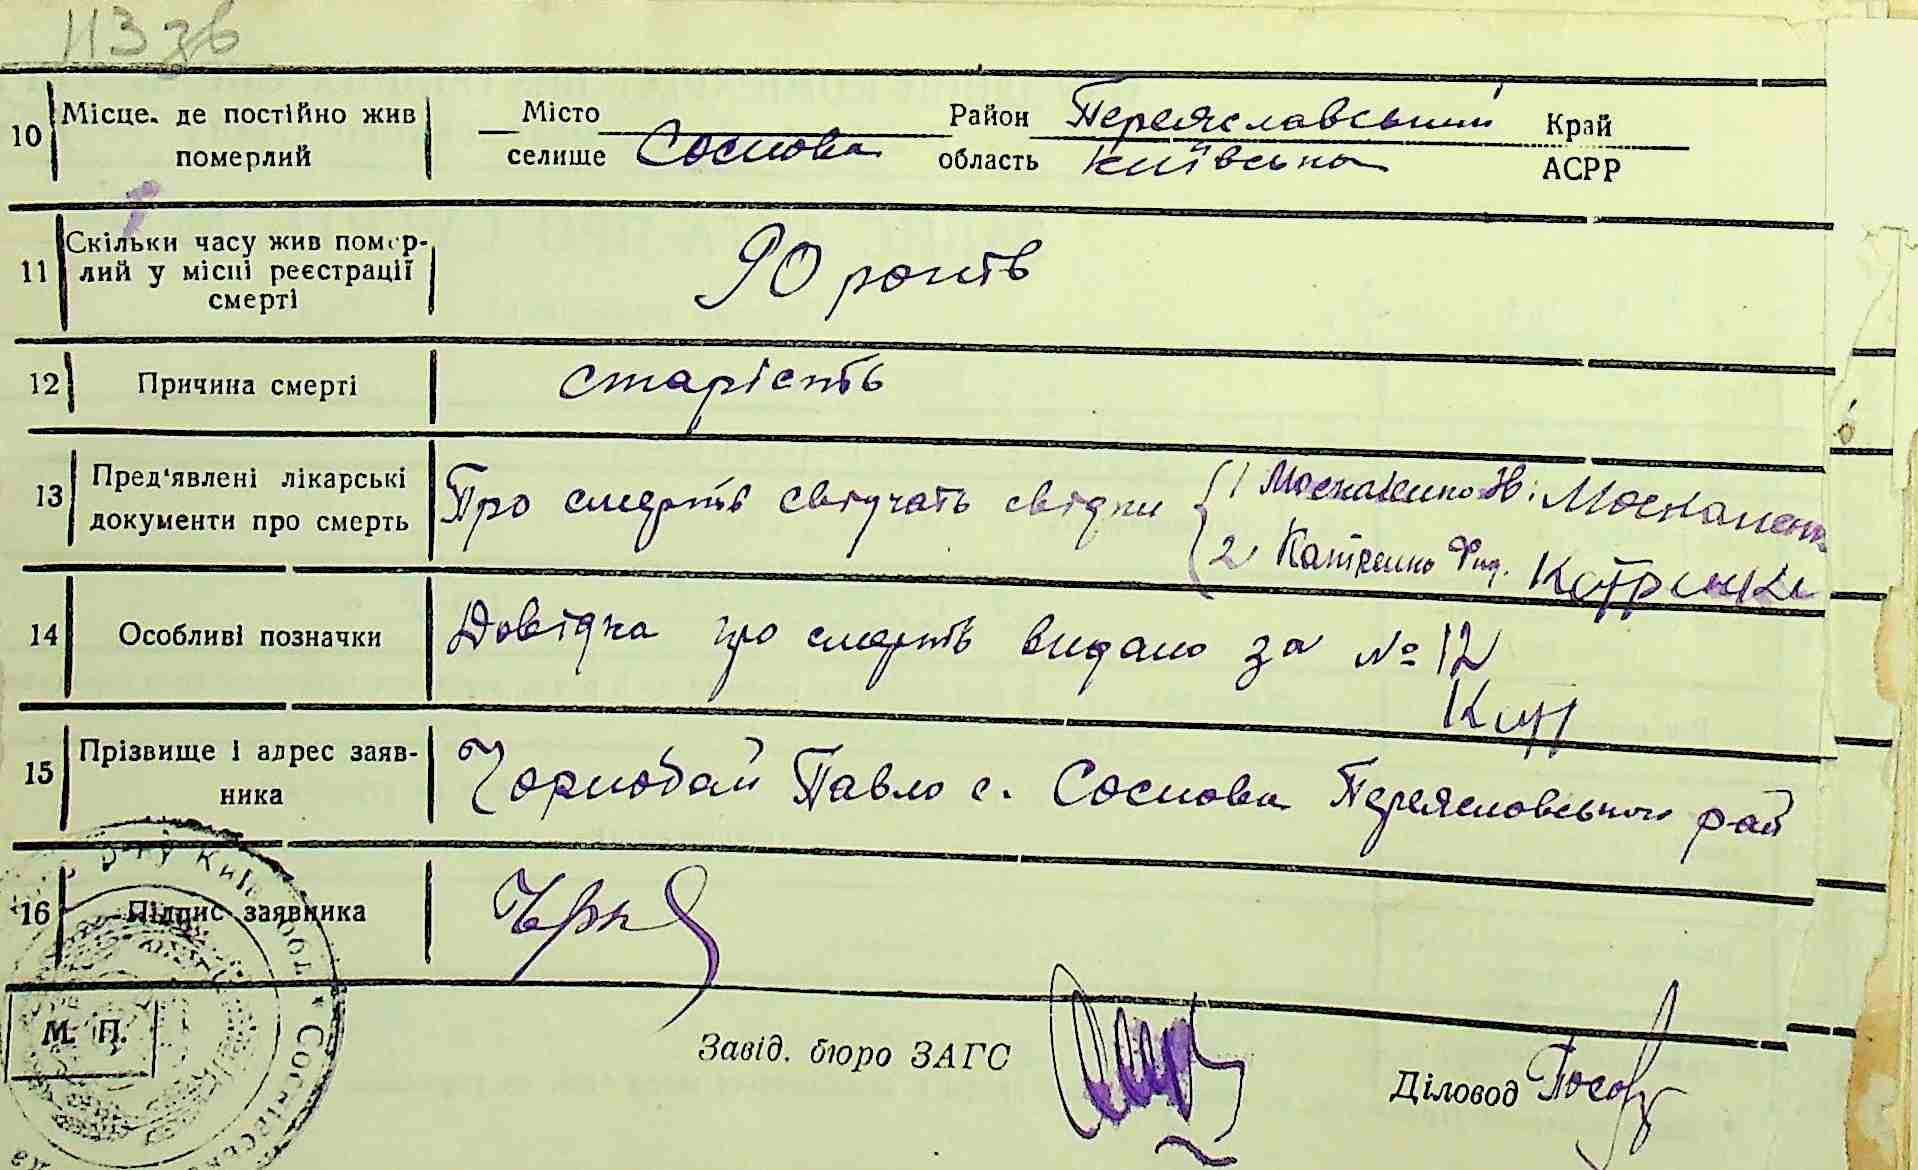 113 зв
10 Місце, де постійно жив Місто Район Переяславський Край
померлий селище Соснова область Київська АСРР
11 Скільки часу жив помер-
лий у місці реєстрації 90 років
смерті
12 Причина смерті старість
13 Пред'явлені лікарські
документи про смерть Про смерть свідчать свідки 1 Москаленко
2 Катренко
14 Особливі позначки Довідка про смерть видано за № 12
15 Прізвище і адрес заяв-
ника Чорнобай Павло с. Соснова Переяславського рай
16 Підпис заявника
М. П.
Завід. бюро ЗАГС
Діловод